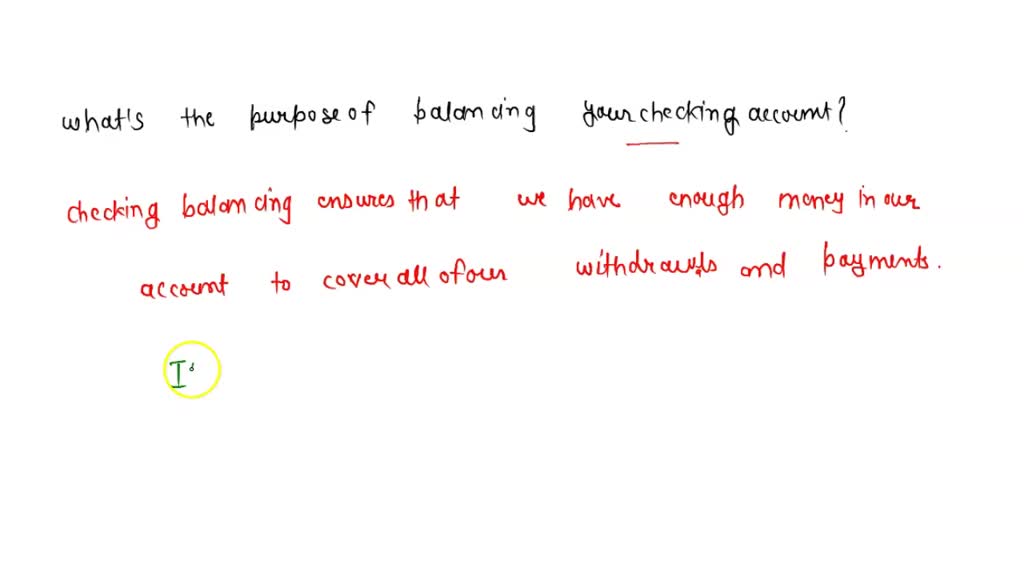 what's the purpose of balancing your checking account?
checking balancing ensures that we have enough money in our
account to cover all of our withdrawls and payments.
I